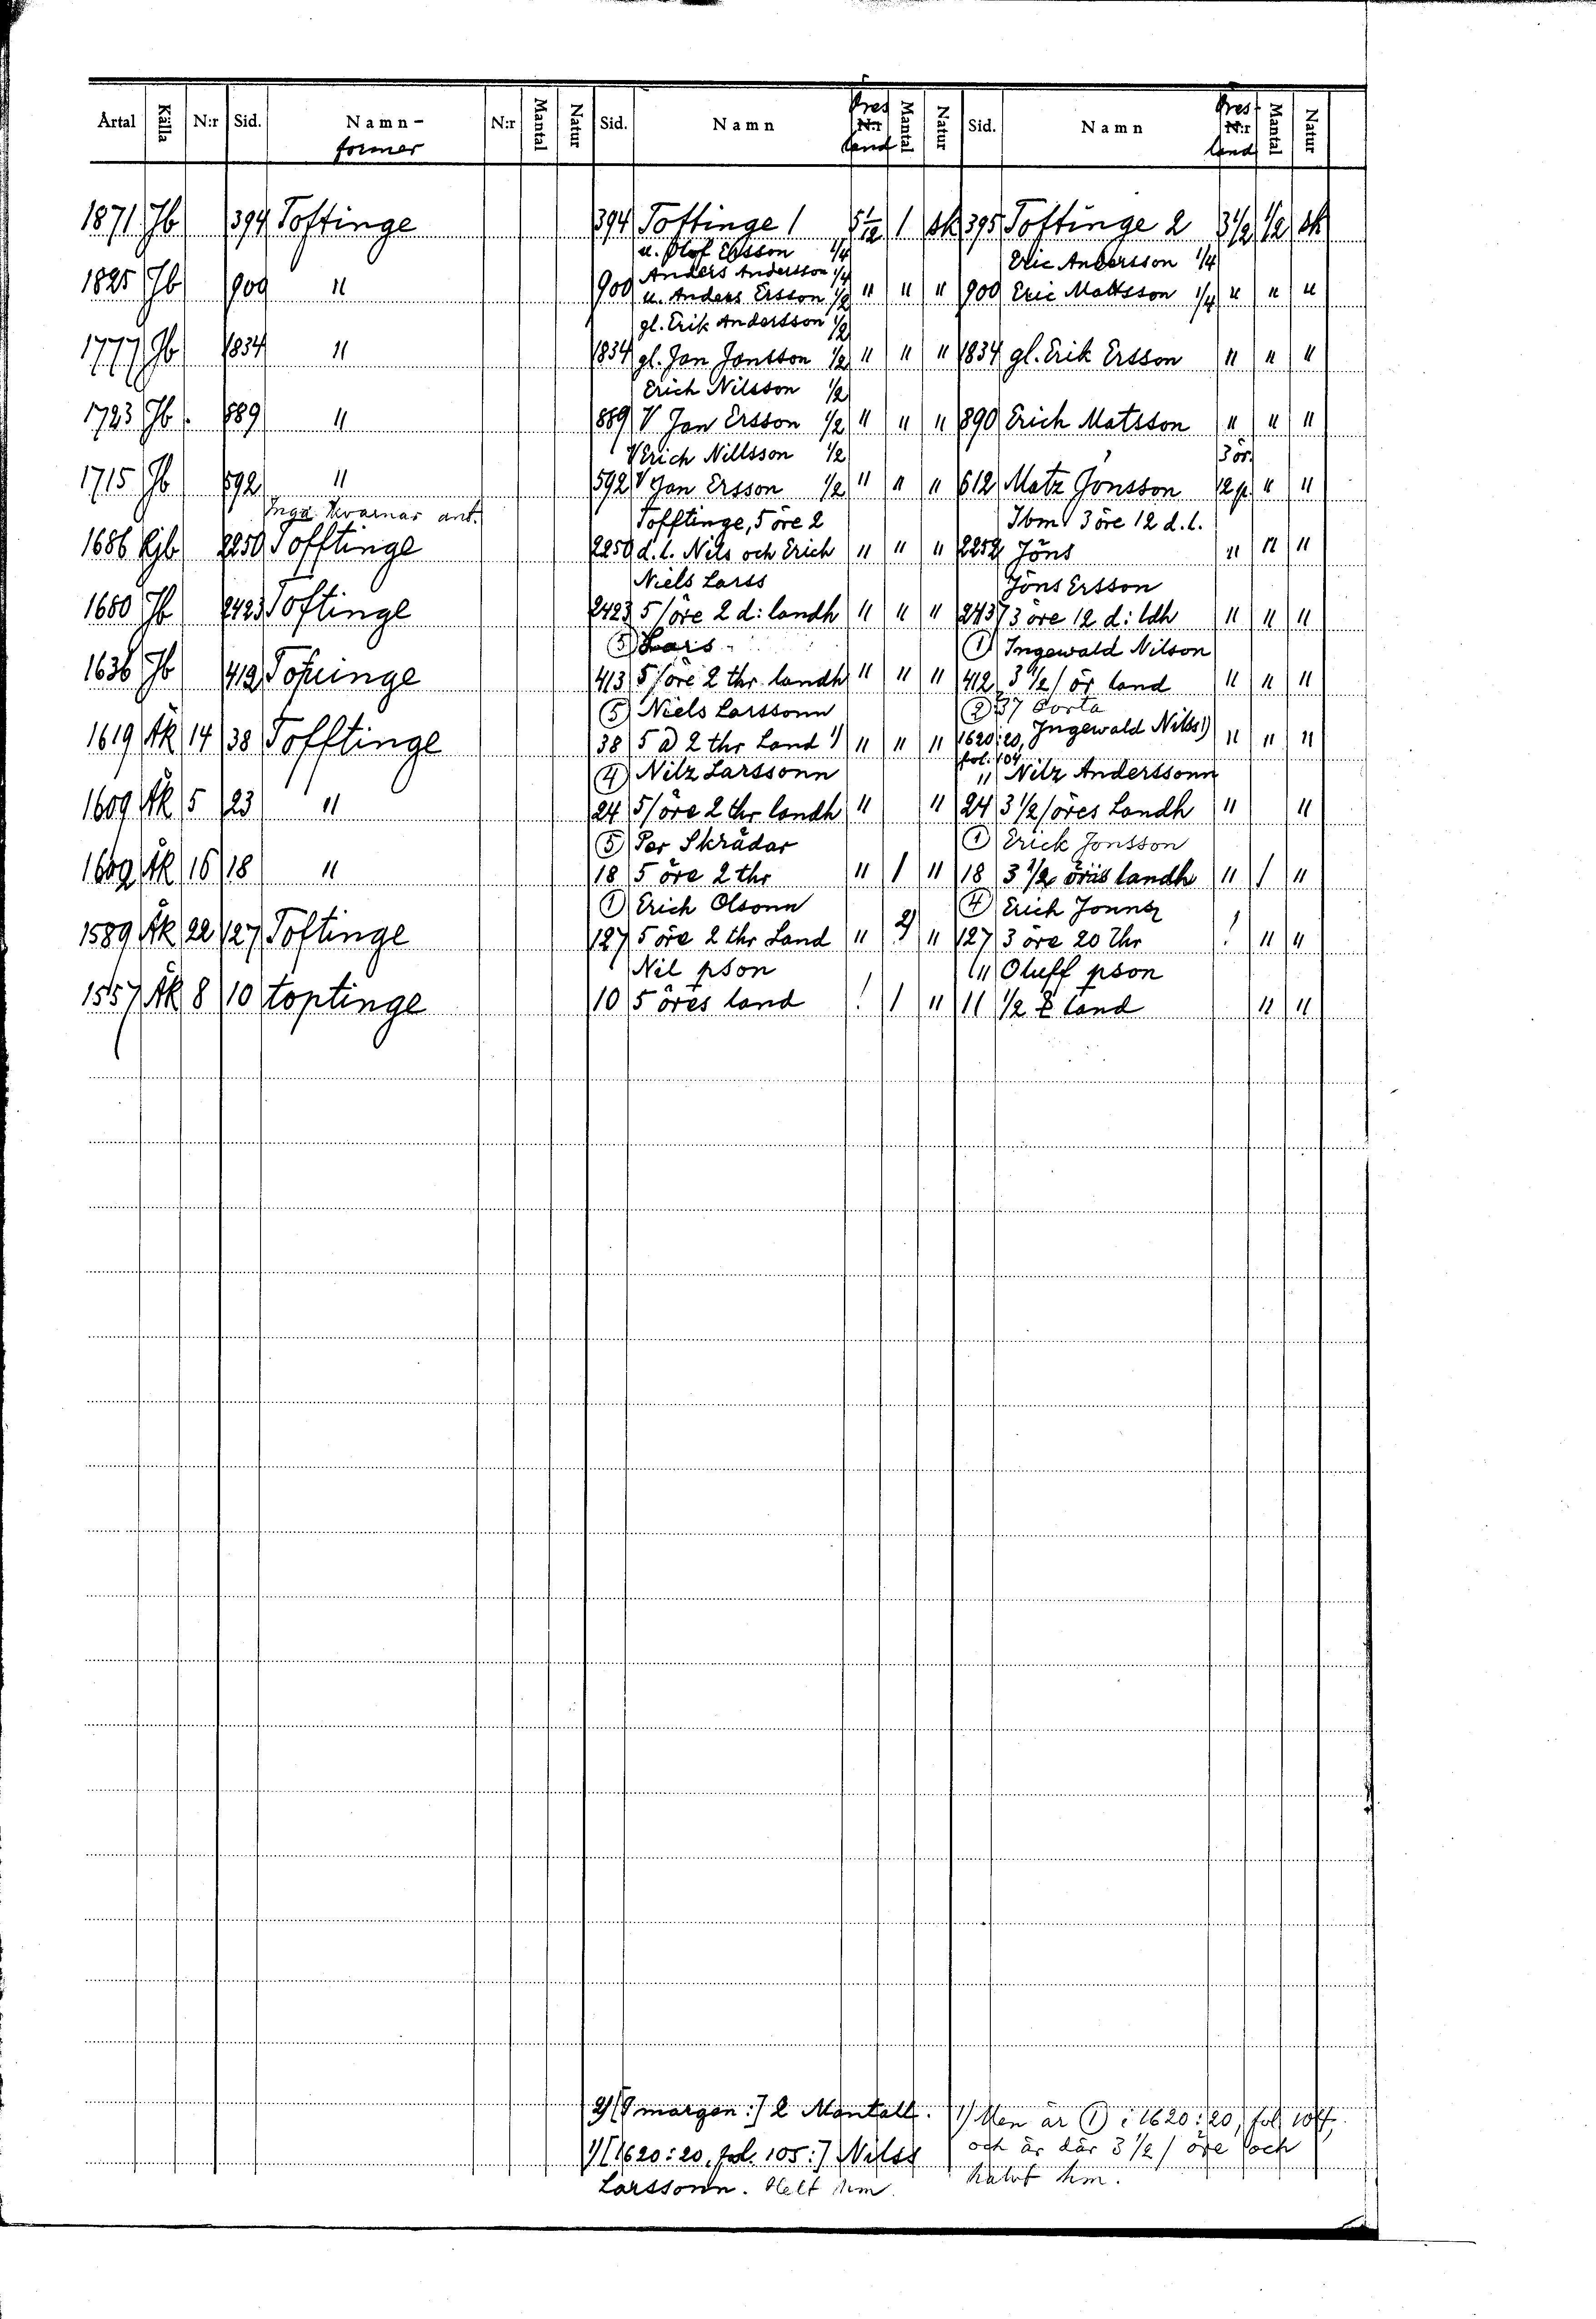 Årtal Källa N:r Sid. Namn- N:r Mantal Natur Sid. Namn Öres N:r Mantal Natur Sid. Namn Öres N:r Mantal Natur
former land land
1871 Jb 394 Toftinge 394 Toftinge 1 5 1/12 1 sk 395 Toftinge 2 3 1/2 1/2 sk
u. Olof Ersson 1/4 Eric Andersson 1/4
Anders Andersson 1/4
1825 Jb 900 " 900 u. Anders Ersson 1/2 " " " 900 Eric Mattsson 1/4 " " "
gl. Erik Andersson 1/2
1777 Jb 1834 " 1834 gl. Jan Jansson 1/2 " " " 1834 gl. Erik Ersson " " "
Erich Nilsson 1/2
1723 Jb. 889 " 889 V Jan Ersson 1/2 " " " 890 Erich Matsson " " "
V Erich Nillsson 1/2 3 ör
1715 Jb 592 " 592 V Jan Ersson 1/2 " " " 612 Matz Jönsson 12 p. " "
Inga Kvarnar ant. Tofftinge, 5 öre 2 Ibm 3 öre 12 d.l.
1686 Kjb 2250 Tofftinge 2250 d.l. Nils och Erich " " " 2252 Jöns " " "
Niels Larss Jöns Ersson
1680 Jb 2423 Toftinge 2423 5/öre 2 d: landh " " " 2437 3 öre 12 d: ldh " " "
(5) Lars (1) Ingewald Nilson
1636 Jb 412 413 5/öre 2 thr landh " " " 412 3 1/2/ ör land " " "
(5) Niels Larssonn (2) 37
1619 Åk 14 38 Tofftinge 38 5 2 thr Land 1) " " " 1620:20, Ingewald Nilss 1) " " "
fol. 104
(4) Nilz Larssonn " Nilz Anderssonn
1609 Åk 5 23 " 24 5/öre 2 thr landh " " 24 3 1/2/öres Landh " "
(5) Per Skrädar (1) Erick Jonsson
1602 Åk 16 18 " 18 5 öre 2 thr " 1 " 18 3 1/2 landh " 1 "
(1) Erich Olsonn (4) Erich
1589 Åk 22 127 Toftinge 127 5 öre 2 thr Land " 2) " 127 3 öre 20 Thr ! " "
Nil pson " Oluff pson
1557 Åk 8 10 toptinge 10 5 öres land ! 1 " 11 1/2 land " "
2) [I margen:] 2 Mantall.
1) [1620:20, fol. 105:] Nilss
Larssonn. Helt hm.
1) Men är (1) i 1620:20, fol. 104,
och är där 3 1/2/ öre och
halvt hm.